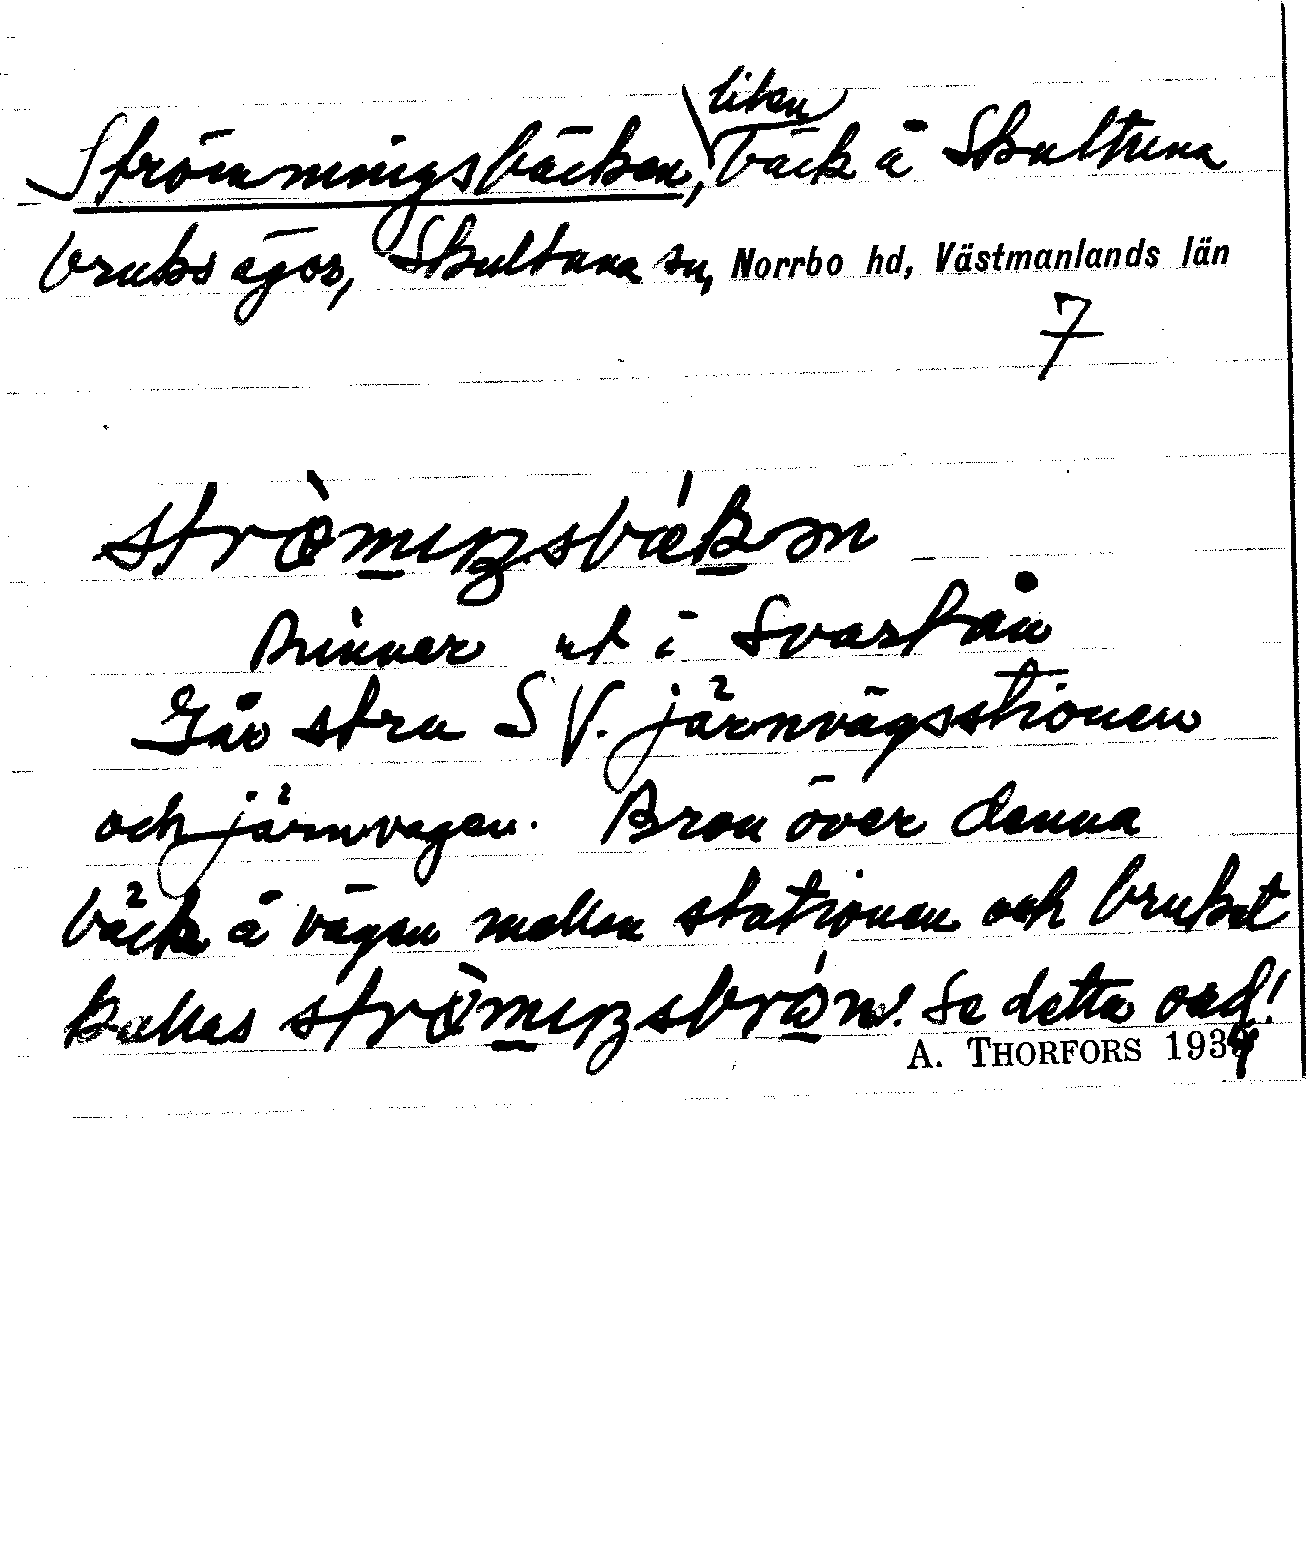 liten
Strömningsbäcken, bäck å Skultuna
bruks ägor, Skultuna sn, Norrbo hd, Västmanlands län
7
Rinner ut i Svartån
Går stru SV. järnvägsstionen
och järnvägen. Bron över denna
bäck å vägen mellan stationen och bruket
kallas Se detta ord!
A. THORFORS 1934